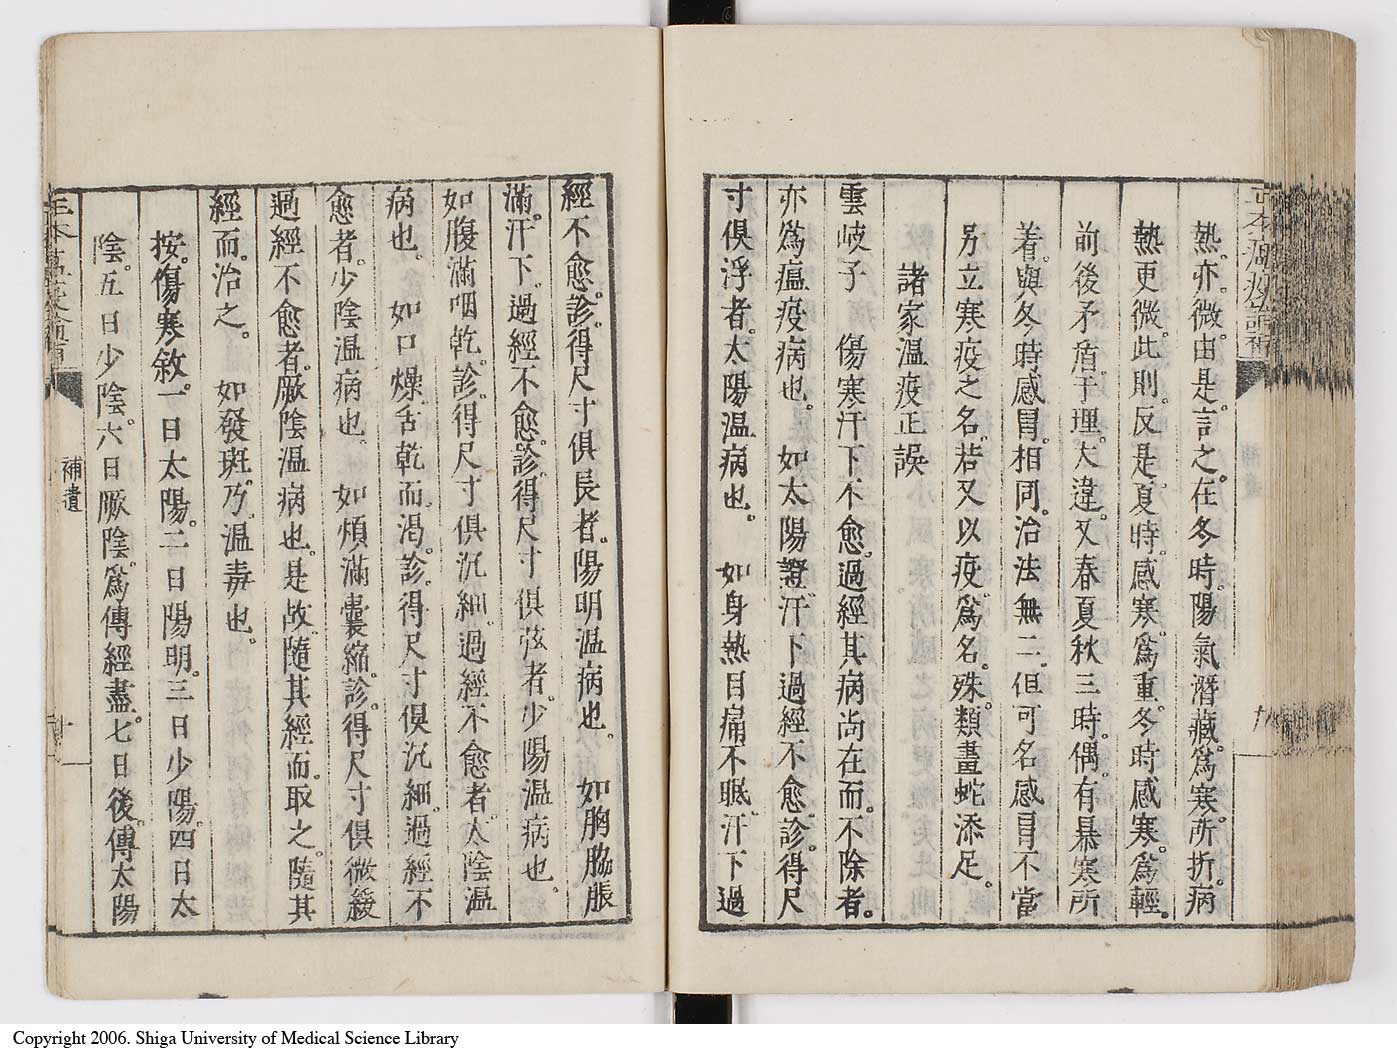 熱亦微。由是言之。在冬時。陽氣潛藏。爲寒所折。病
熱更微。此則反是。夏時感寒。爲重。冬時感寒。爲輕。
前後矛盾。于理大違。又春夏秋三時。偶有暴寒所
着。與冬時感冒相同。治法無二。但可名感冒。不當
另立寒疫之名。若又以疫爲名。殊類畫蛇添足。
諸家温疫正誤
雲岐子　傷寒汗下不愈。過經其病尚在而不除者。
亦爲瘟疫病也。　如太陽證。汗下過經不愈。診得尺
寸俱浮者。太陽温病也。　如身熱目痛不眠。汗下過
經不愈。診得尺寸俱長者。陽明温病也。　如胸脇脹
滿。汗下過經不愈。診得尺寸俱弦者。少陽温病也。
如腹滿咽乾。診得尺寸俱沉細。過經不愈者。太陰温
病也。　如口燥舌乾而渴。診得尺寸俱沉細。過經不
愈者。少陰温病也。　如煩滿囊縮。診得尺寸俱微緩
過經不愈者。厥陰温病也。是故隨其經而取之。隨其
經而治之。　如發斑。乃温毒也。
按。傷寒敘。一日太陽。二日陽明。三日少陽。四日太
陰。五日少陰。六日厥陰。爲傳經盡。七日後。傳太陽
補遺
Copyright 2006. Shiga University of Medical Science Library